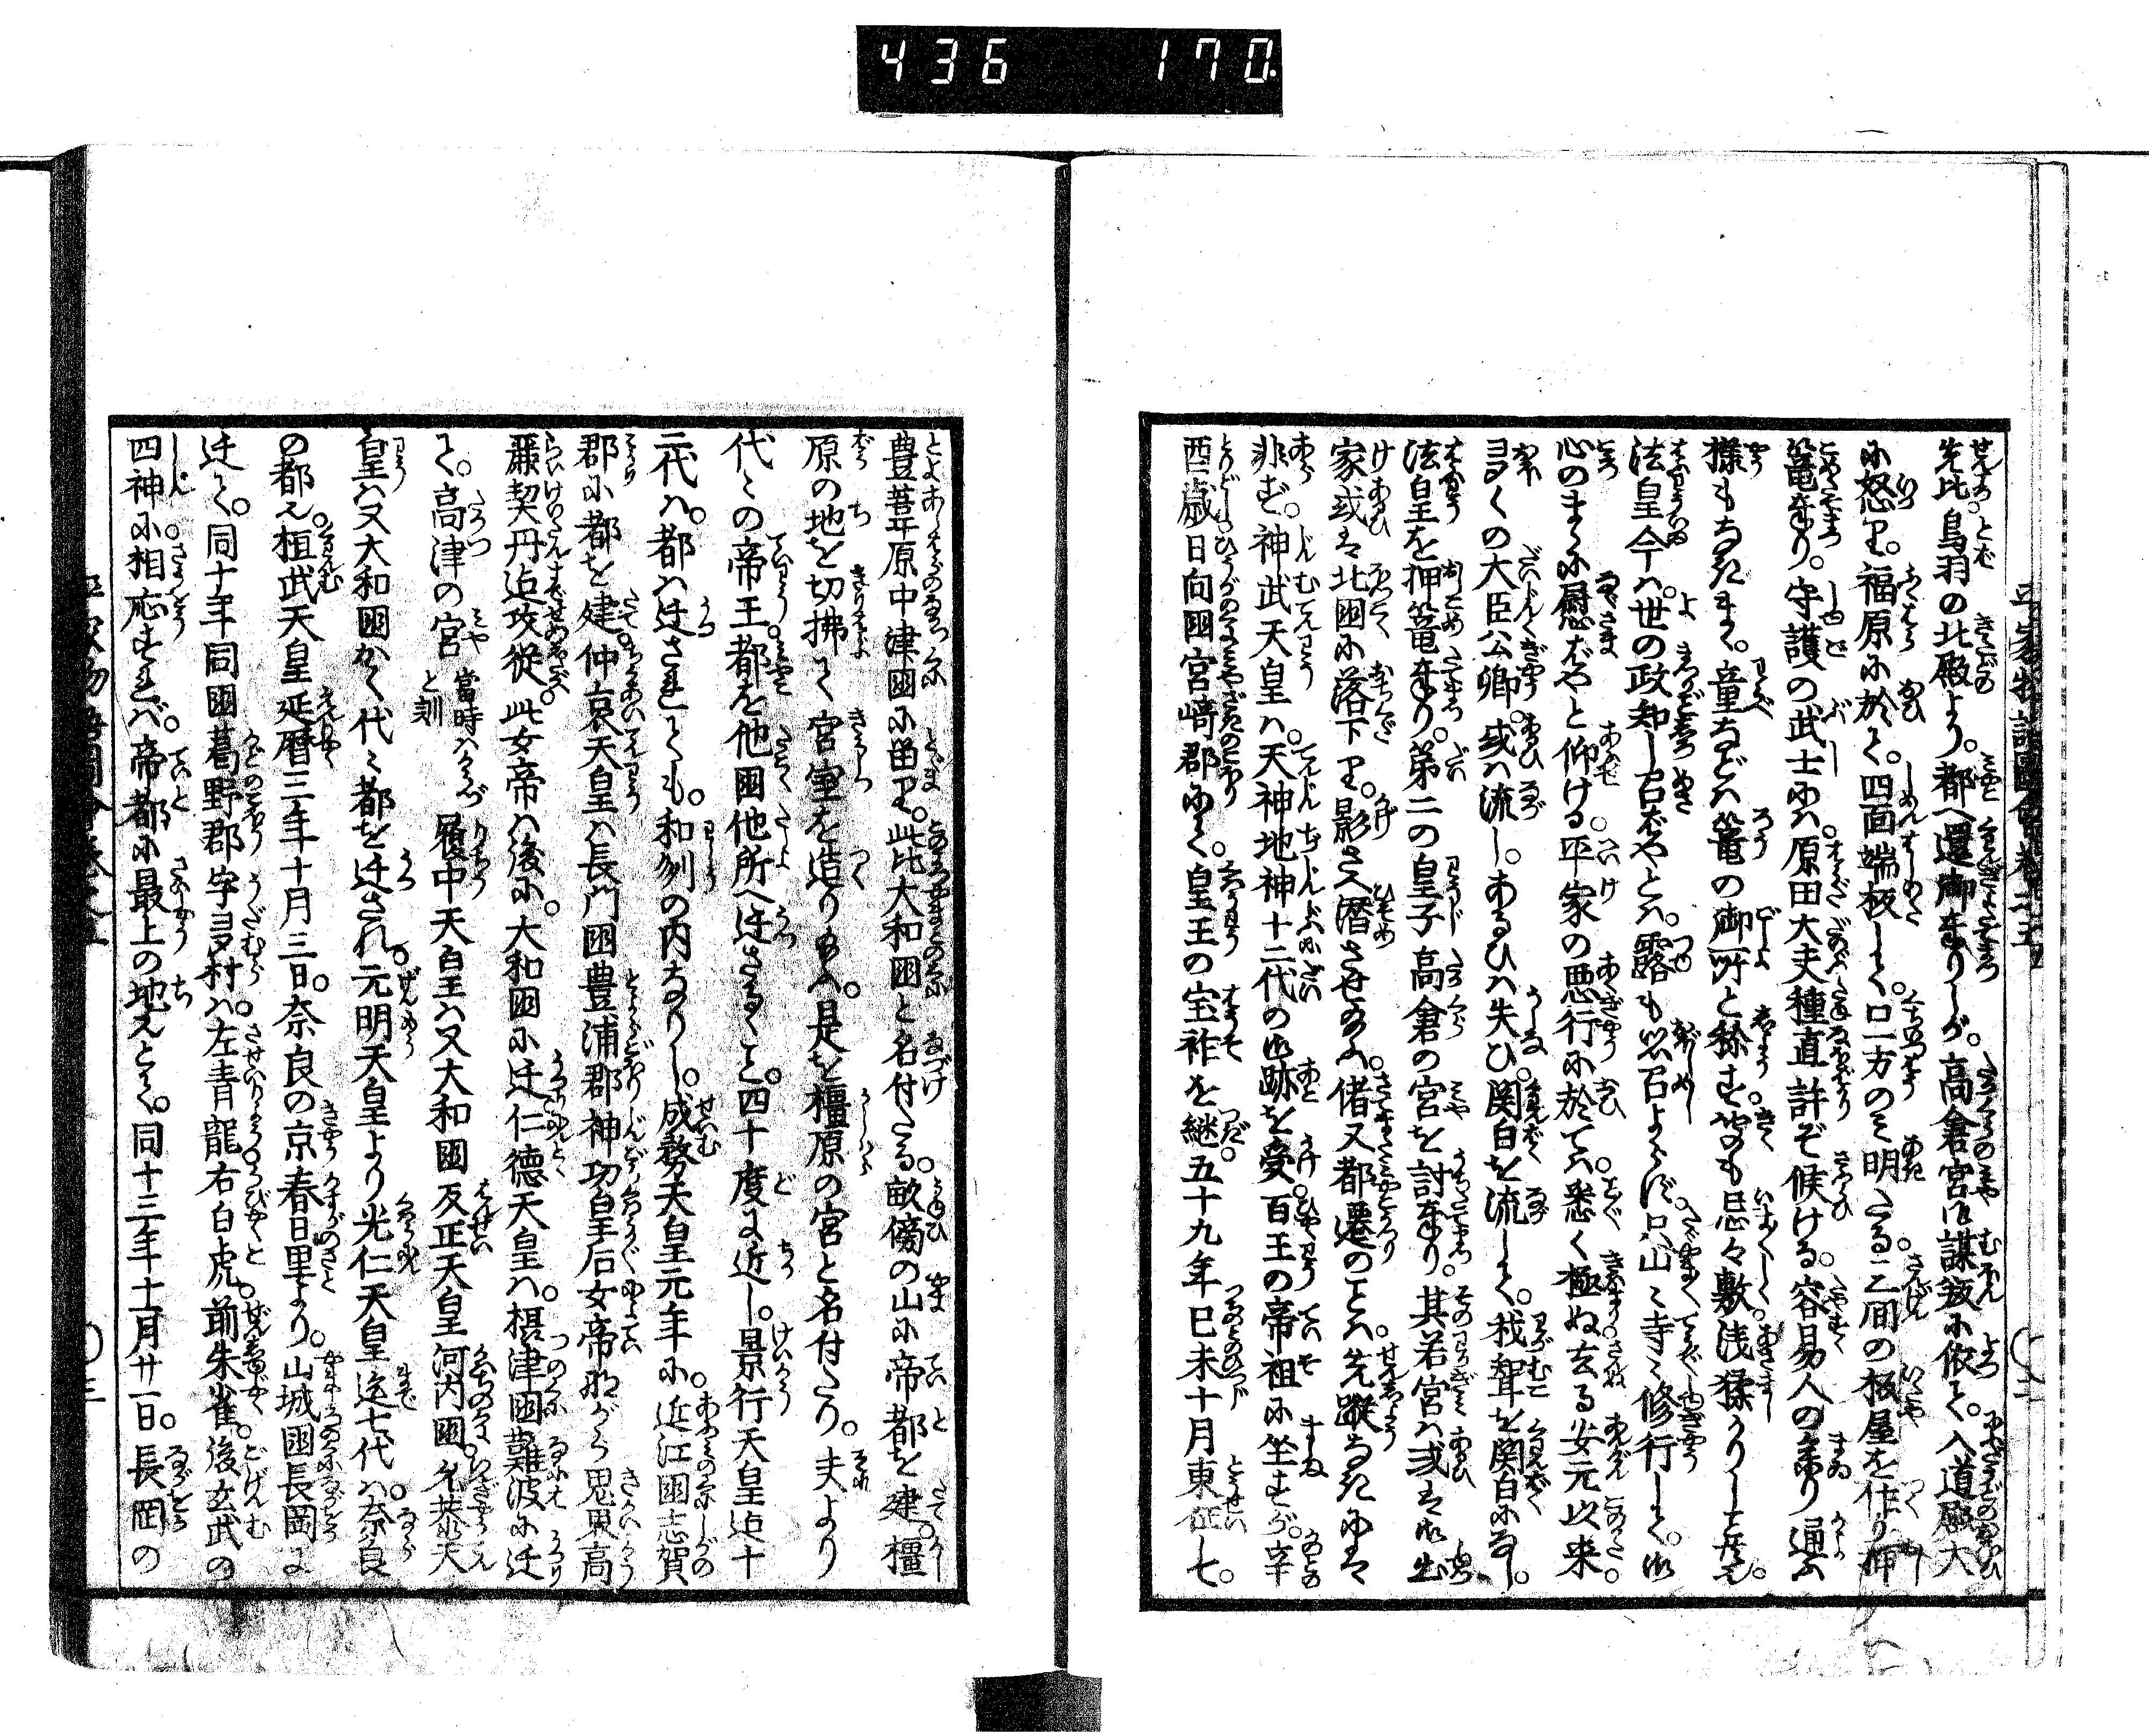 436 170
先比。鳥羽の北殿より。都へ還御奉りしが。高倉宮御謀叛に依て。入道殿大
に怒り。福原に於て。四面端板して。口一方のみ明たる三間の板屋を作り押
篭奉り。守護の武士には。原田大夫種直許ぞ候ける。容易人の参り通ふ
様もなきまゝ。童などハ篭の御所と称す。聞も忌々敷浅猿かりし㕝共也。
法皇今ハ。世の政知し召ばやとハ。露も思召よらず。只山々寺々修行して。御
心のまゝに慰ばやと仰ける。平家の悪行に於てハ。悉く極ぬ。去る安元以来。
多くの大臣公卿。或ハ流し。あるひハ失ひ。関白を流して。我聟を関白になし。
法皇を押篭奉り。第二の皇子高倉の宮を討奉り。其若宮ハ或は御出
家或は北国に落下り。影さへ潜させ給ふ。偖又都遷のことハ。先蹤なきには
非ず。神武天皇ハ。天神地神十二代の御跡を受。百王の帝祖に坐すが。辛
酉歳日向国宮崎郡にて。皇王の宝祚を継。五十九年己未十月東征し七。
豊葦原中津国に留り。此比大和国と名付たる。畝傍の山に帝都を建。橿
原の地を切拂て宮室を造り給ふ。是を橿原の宮と名付たり。夫より
代々の帝王。都を他国他所へ迁さるゝこと。四十度に近し。景行天皇迄十
二代ハ。都ハ迁されども。和州の内なりし。成務天皇元年に。近江国志賀
郡に都を建。仲哀天皇ハ長門国豊浦郡神功皇后女帝ながら鬼界高
麗契丹迄攻従へ。此女帝ハ後に。大和国に迁仁徳天皇ハ。摂津国難波に迁
て。高津の宮 當時ハかうづと刻 履中天皇ハ又大和国反正天皇河内国。允恭天
皇ハ又大和国かく代々都を迁され。元明天皇より光仁天皇迄七代ハ。奈良
の都也。桓武天皇延暦三年十月三日。奈良の京春日里より。山城国長岡に
迁て。同十年同国葛野郡宇多村ハ。左青龍右白虎。前朱雀。後玄武の
四神に相応すれば。帝都に最上の地也とて。同十三年十一月廿一日。長岡の